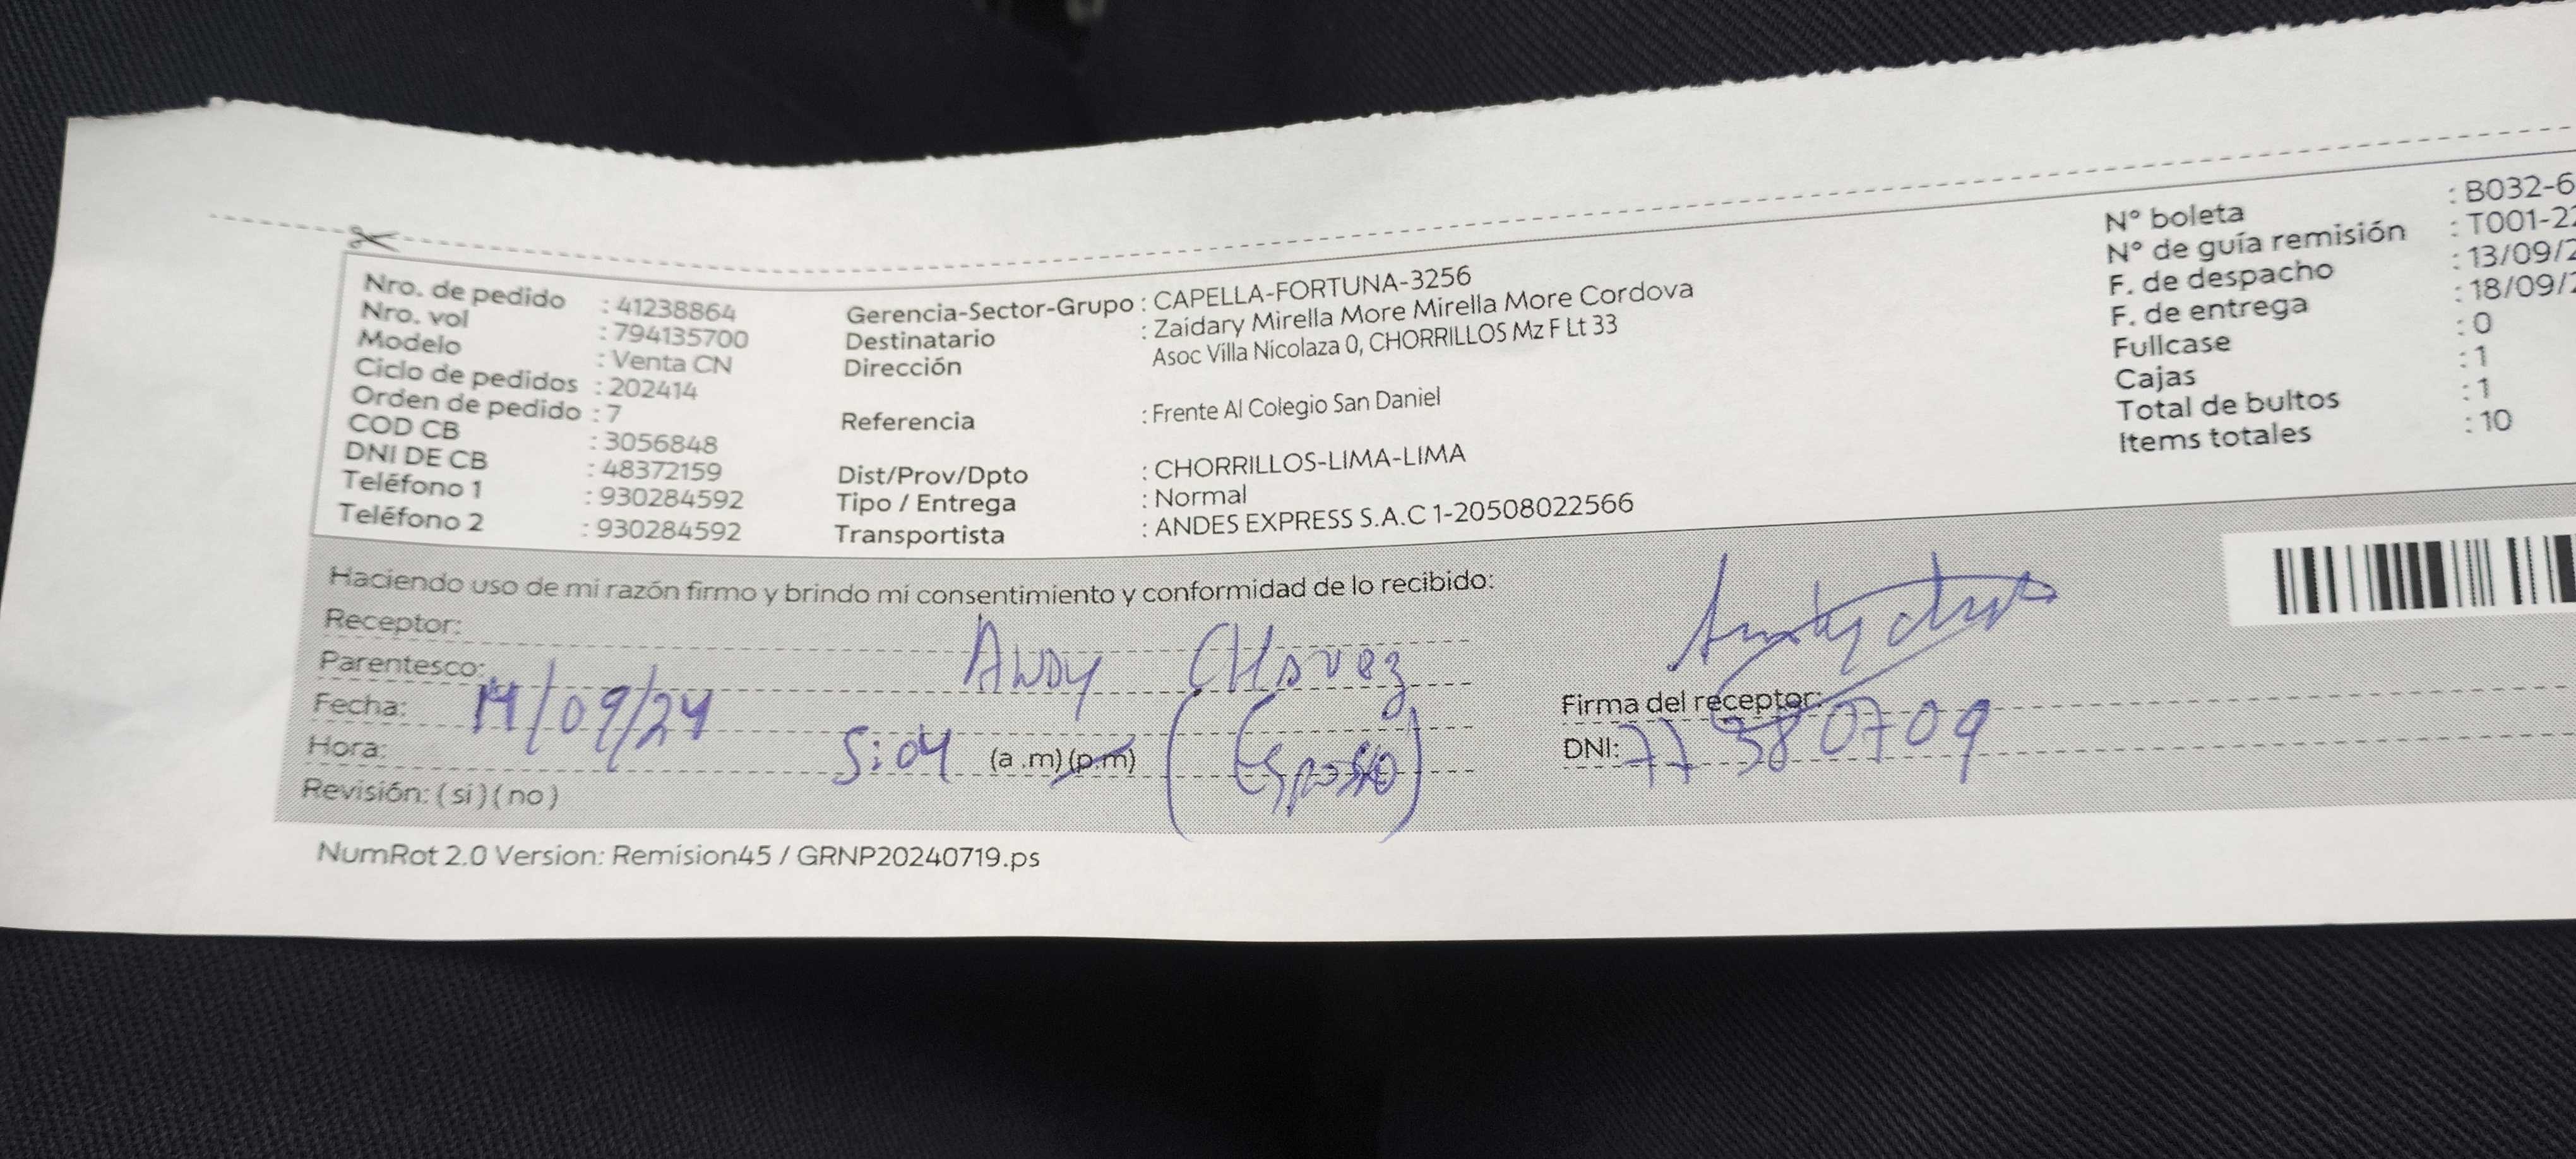 Nro. de pedido : 41238864
Nro. vol : 794135700
Modelo : Venta CN
Ciclo de pedidos : 202414
Orden de pedido : 7
COD CB : 3056848
DNI DE CB : 48372159
Teléfono 1 : 930284592
Teléfono 2 : 930284592
Gerencia-Sector-Grupo : CAPELLA-FORTUNA-3256
Destinatario : Zaidary Mirella More Mirella More Cordova
Dirección Asoc Villa Nicolaza 0, CHORRILLOS Mz F Lt 33
Referencia : Frente Al Colegio San Daniel
Dist/Prov/Dpto : CHORRILLOS-LIMA-LIMA
Tipo / Entrega : Normal
Transportista : ANDES EXPRESS S.A.C 1-20508022566
N° boleta : B032-6
N° de guía remisión : T001-22
F. de despacho : 13/09/2
F. de entrega : 18/09/2
Fullcase : 0
Cajas : 1
Total de bultos : 1
Items totales : 10
Haciendo uso de mi razón firmo y brindo mi consentimiento y conformidad de lo recibido:
Receptor: ANDY CHAVEZ
Parentesco: (Esposo)
Fecha: 14/09/24
Hora: 5:04 (a .m) (p.m)
Revisión: ( si ) ( no )
Firma del receptor:
DNI: 77380709
NumRot 2.0 Version: Remision45 / GRNP20240719.ps